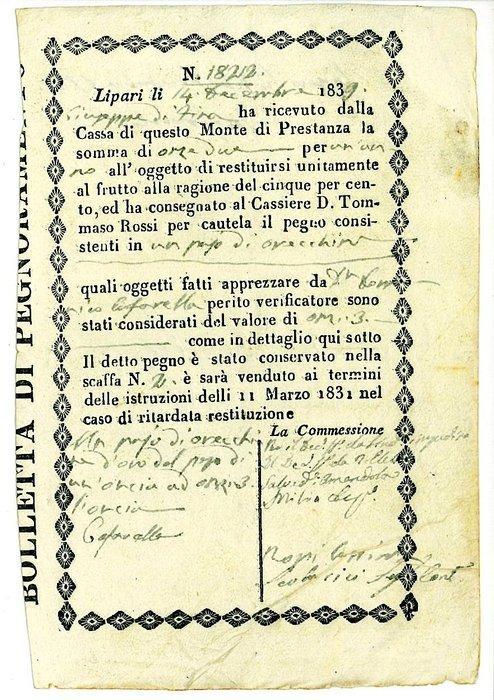 BOLLETTA DI PEGNORAMENTO
N. 1822.
Lipari li 14 Decembre 1839.
Giuseppe di ha ricevuto dalla
Cassa di questo Monte di Prestanza la
somma di onze due per un an
no all' oggetto di restituirsi unitamente
al frutto alla ragione del cinque per cen-
to, ed ha consegnato al Cassiere D. Tom-
maso Rossi per cautela il pegno consi-
stenti in un pajo di orecchine
quali oggetti fatti apprezzare da Dn Dome
nico Cafarella perito verificatore sono
stati considerati del valore di onz: 3.
come in dettaglio qui sotto
Il detto pegno è stato conservato nella
scaffa N. 2. è sarà venduto ai termini
delle istruzioni delli 11 Marzo 1831 nel
caso di ritardata restituzione
La Commessione
Un pajo di orecchi
ne d'oro del peso di
un'oncia ad onz: 3.
l'oncia
Cafarella